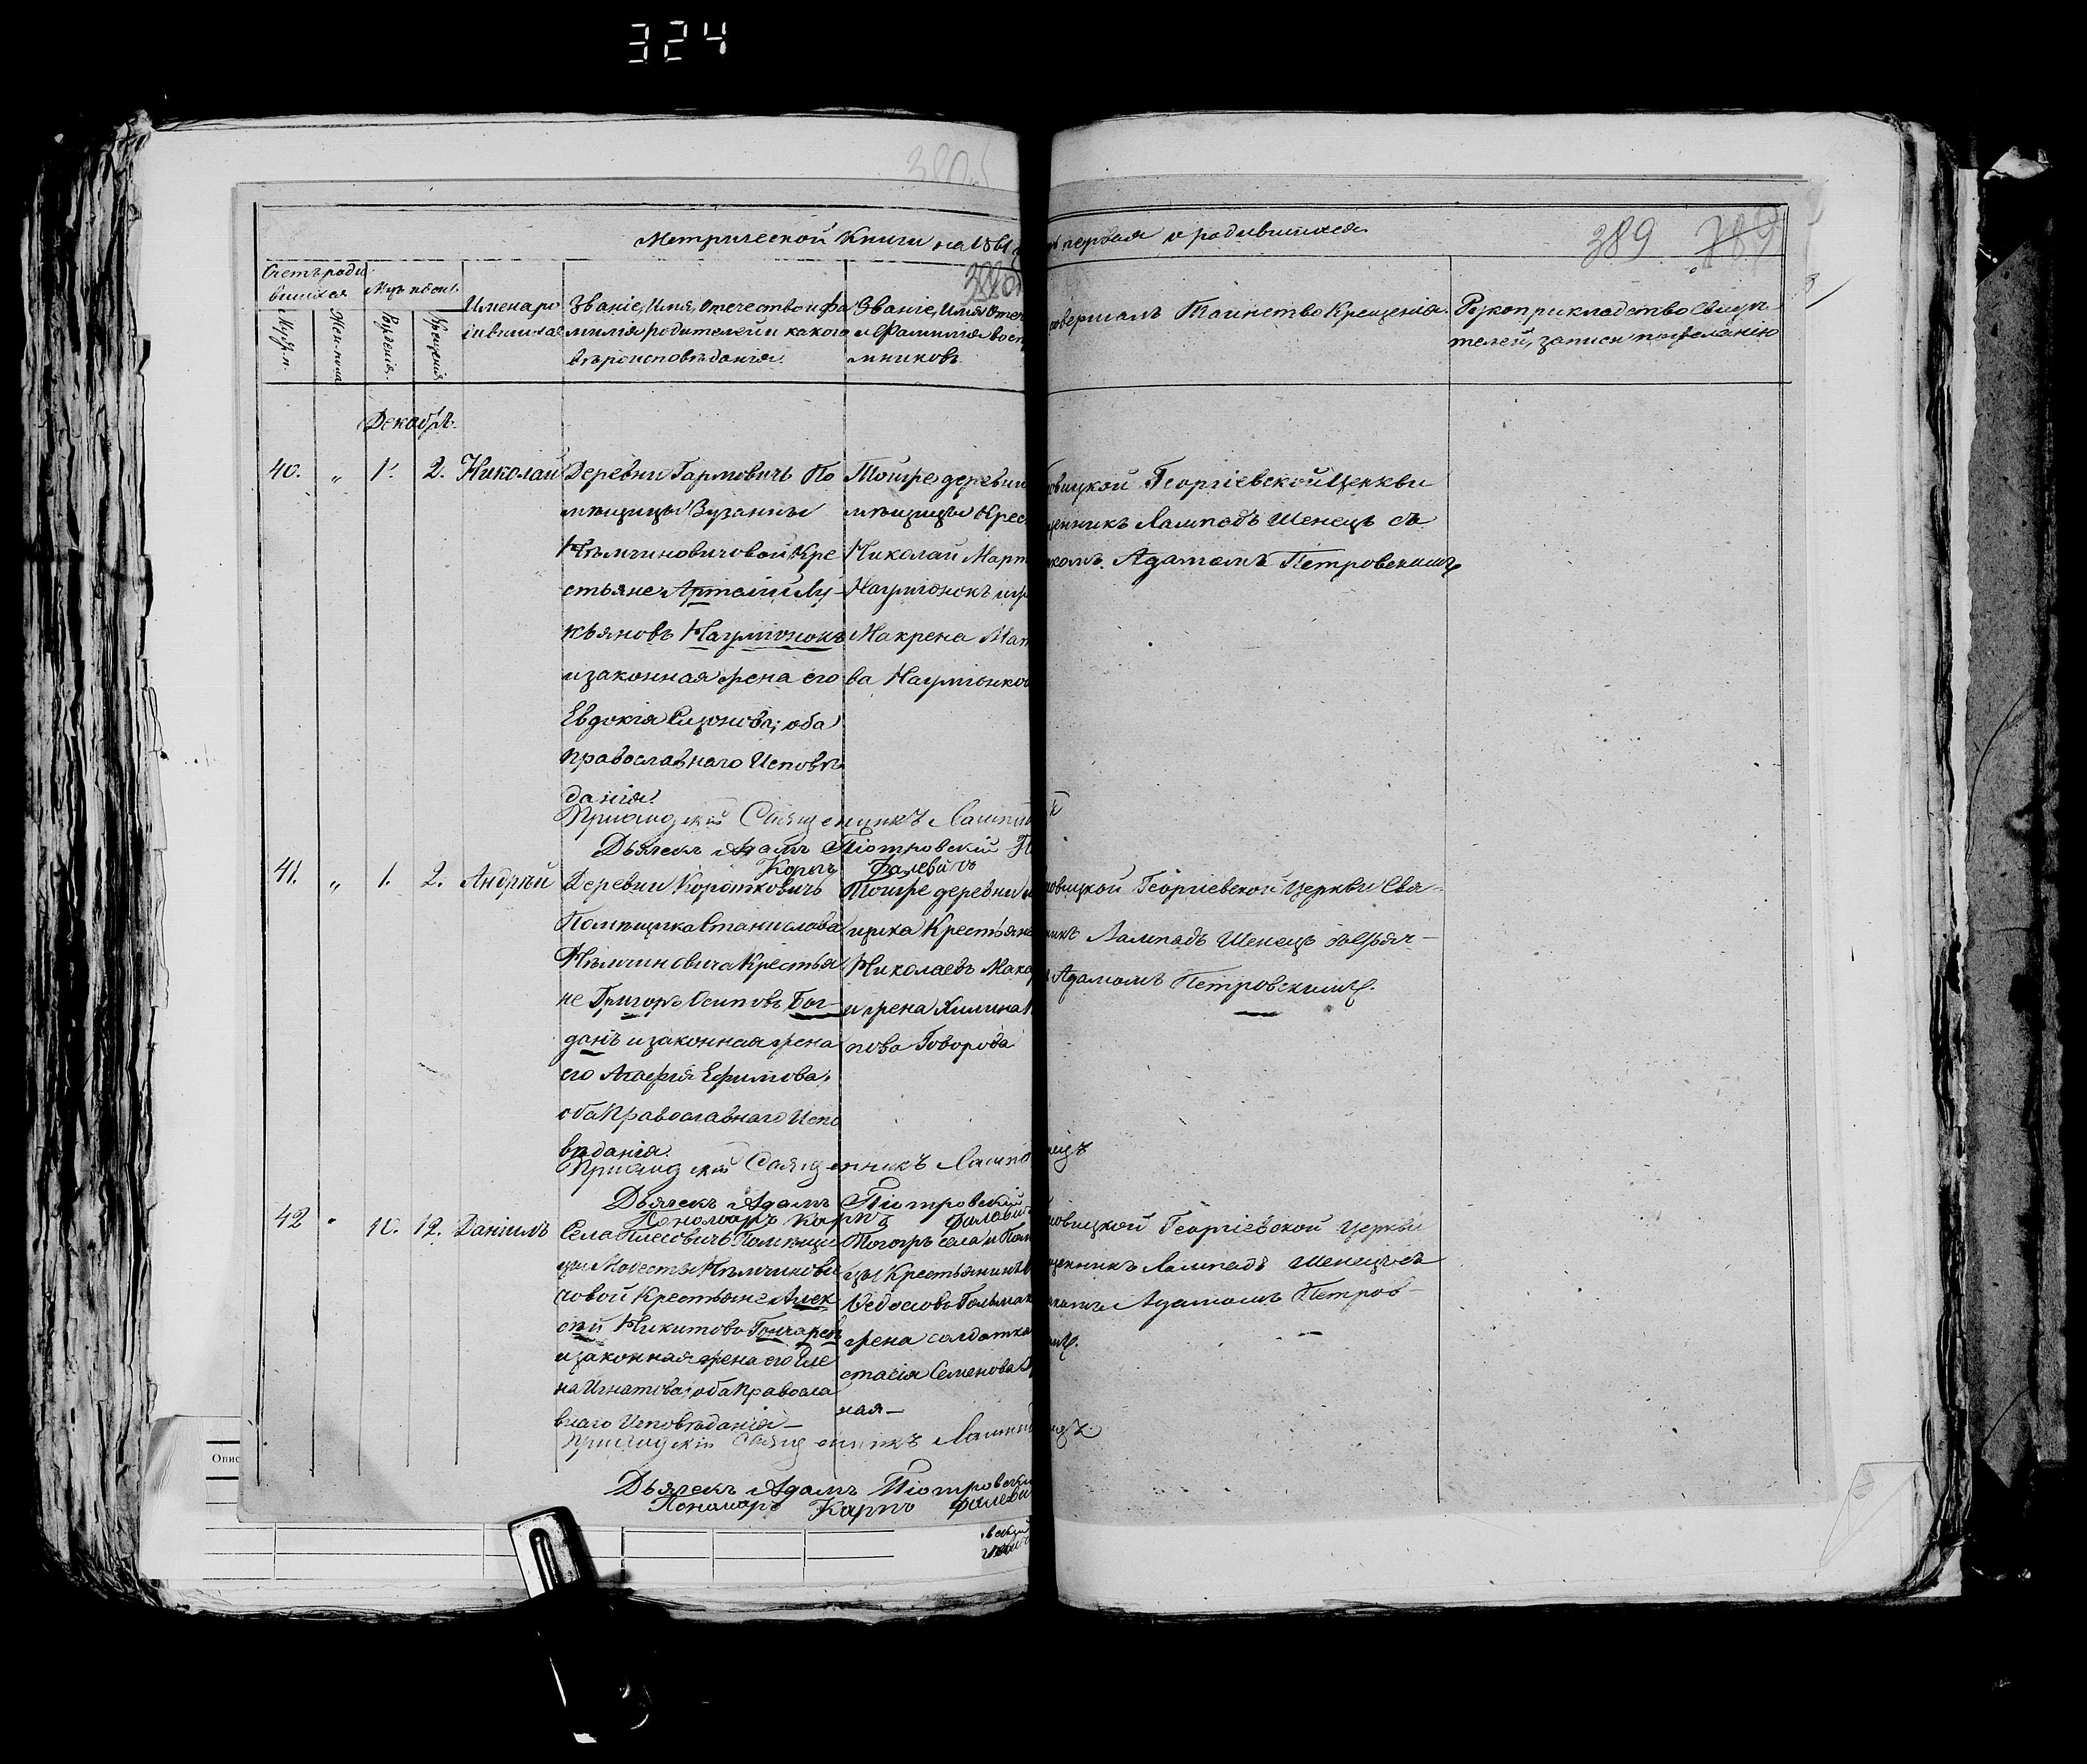 324
Метрической Книги на 1861
первая о родившихся
389
Счетъ роди
вшихся
Мужес. п.
Жен. пола
Рожденія.
Крещенія
Имена ро
дившихся
Званіе, Имя, Отечество и Фа
милія родителей и какого
вѣроисповѣданія.
Званіе, Имя Отеч
и Фамилія восп
мниковъ
совершалъ Таинство Крещенія.
Рукоприкладство Свидѣ
телей, записи по желанію
Декабрь.
40. „ 1. 2. Николай
Деревни Гармовичъ По
мѣщицы Зузанны
Нѣмчиновичовой Кре
стьяне Артемій Лу-
кьяновъ Наумюнокъ
и законная жена его
Евдокія Сидонова; оба
православнаго Исповѣ
данія.
Тойже деревни
мѣщицы Крес
Николай Март
Наумюнокъ и
Макрена Мат
ва Наумюнков
овицкой Георгіевской Церкви
щенникъ Лампадъ Шенецъ съ
комъ Адамомъ Петровскимъ
Приходскій Священникъ Лампад
Дьячекъ Адамъ Піотровскій
Карпъ Фалевичъ
41. „ 1. 2. Андрѣй
Деревни Коротковичъ
Помѣщика Станислова
Нѣмчиновича Крестья
не Григорь Осиповъ Бог-
данъ и законная жена
его Агафія Ефимова,
оба Православнаго Испо
вѣданія
Тойже деревни
щика Крестьяне
Николаевъ Мака
и жена Акилина
пова Говорова
овицкой Георгіевской Церкви Свя-
никъ Лампадъ Шенецъ съ Дьяч-
Адамомъ Петровскимъ.
Приходскій Священникъ Лампа
нецъ
Дьячекъ Адамъ Піотровскій
Пономарь Карпъ Фалевич
42 „ 10. 12. Даніилъ
Села Плесовичъ Помѣщи
цы Модесты Нѣмчинови
човой Крестьяне Алек
сѣй Никитовъ Гончарен
и законная жена его Еле
на Игнатова; оба Правосла
внаго Исповѣданія-
Тогожъ села и Пом
цы Крестьянинъ
Ѳедосовъ Гольмак
жена солдатка
стасія Семенова
ная-
овицкой Георгіевской Церкви
щенникъ Лампадъ Шенецъ съ
комъ Адамомъ Петров-
имъ.
Приходскій Священникъ Лампад
нецъ.
Дьячекъ Адамъ Піотровскій
Пономарь Карпъ Фалеви
Опис